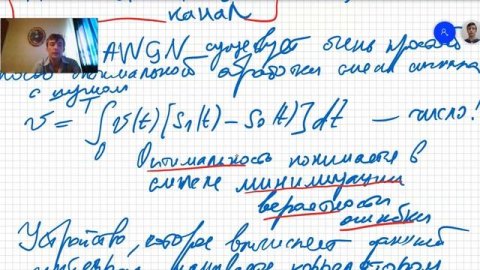 канал
AWGN существует очень простой
способ оптимальной обработки смеси сигнала
с шумом
v = ∫₀ᵀ v(t) [S₁(t) – S₀(t)] dt — число!
Оптимальность понимается в
смысле минимизации
вероятности
ошибки
Устройство, которое вычисляет данный
интеграл называется коррелятором